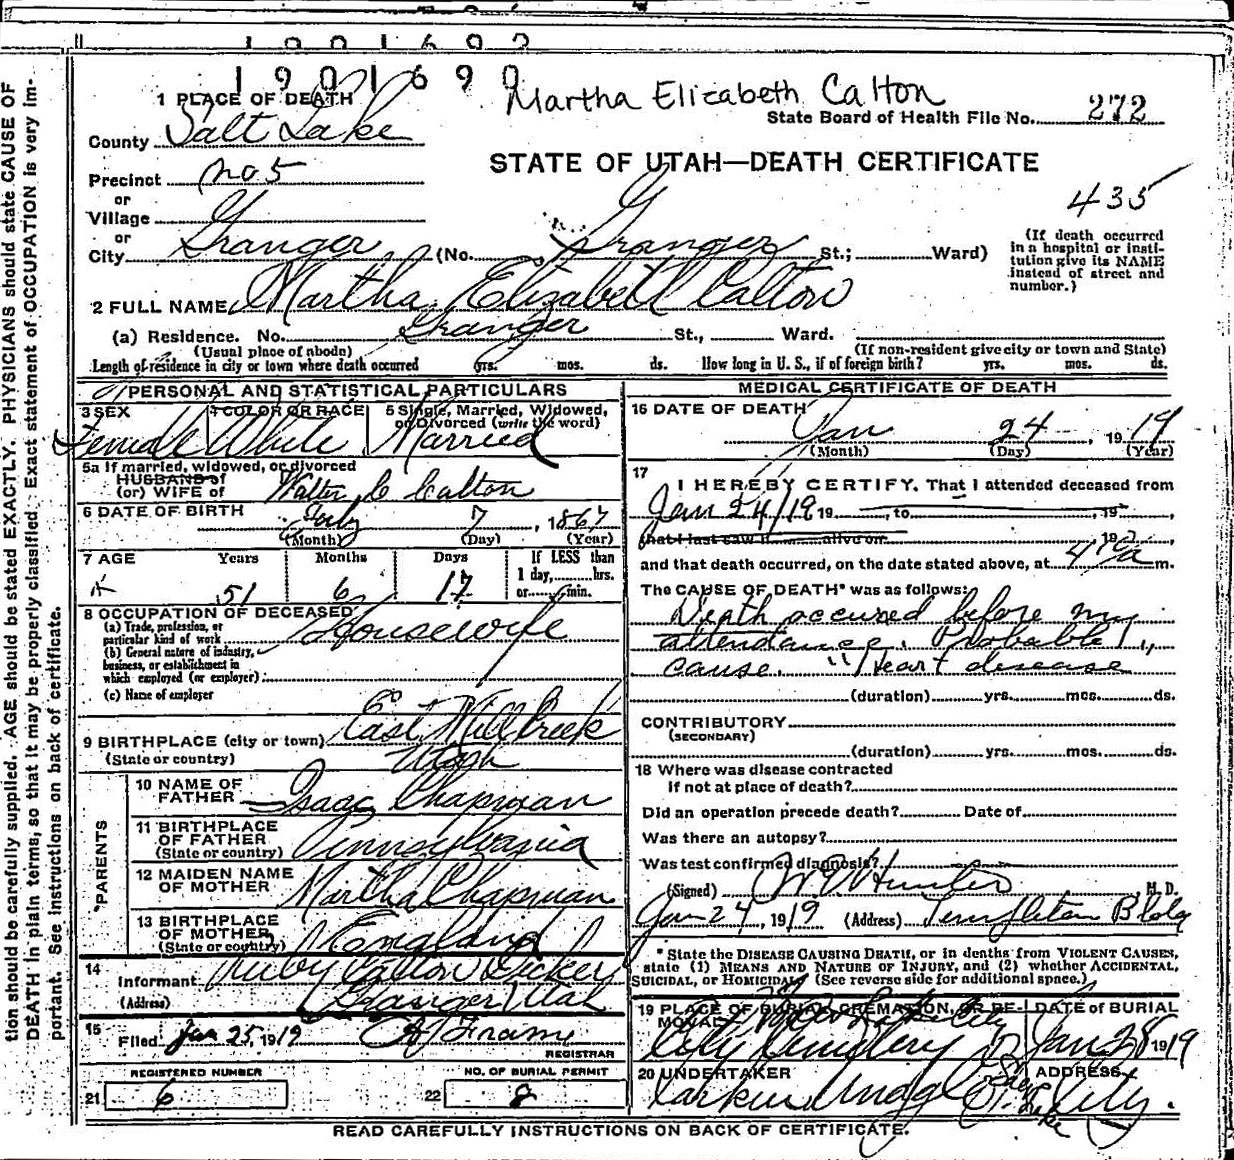 1901690
Martha Elizabeth Calton
State Board of Health File No. 272
STATE OF UTAH—DEATH CERTIFICATE
435
1 PLACE OF DEATH
County Salt Lake
Precinct No. 5
or
Village
or
City Granger (No. Granger St.; Ward)
(If death occurred in a hospital or institution give its NAME instead of street and number.)
2 FULL NAME Martha Elizabeth Calton
(a) Residence. No. Granger St., Ward.
(Usual place of abode) (If non-resident give city or town and State)
Length of residence in city or town where death occurred yrs. mos. ds. How long in U. S., if of foreign birth? yrs. mos. ds.
PERSONAL AND STATISTICAL PARTICULARS
3 SEX Female
4 COLOR OR RACE White
5 Single, Married, Widowed, or Divorced (write the word) Married
5a If married, widowed, or divorced
HUSBAND of
(or) WIFE of Walter C Calton
6 DATE OF BIRTH July 7, 1867
(Month) (Day) (Year)
7 AGE Years Months Days If LESS than
51 6 17 1 day,......hrs.
or......min.
8 OCCUPATION OF DECEASED
(a) Trade, profession, or particular kind of work Housewife
(b) General nature of industry, business, or establishment in which employed (or employer)
(c) Name of employer
9 BIRTHPLACE (city or town) East Mill Creek
(State or country) Utah
PARENTS
10 NAME OF FATHER Isaac Chapman
11 BIRTHPLACE OF FATHER (State or country) Pennsylvania
12 MAIDEN NAME OF MOTHER Martha Chapman
13 BIRTHPLACE OF MOTHER (State or country) England
14 Informant Ruby Calton Dickey
(Address) Granger Utah
15 Filed Jan 25, 1919 Frame
REGISTRAR
REGISTERED NUMBER
21 6
NO. OF BURIAL PERMIT
22 2
MEDICAL CERTIFICATE OF DEATH
16 DATE OF DEATH Jan 24, 1919
(Month) (Day) (Year)
17 I HEREBY CERTIFY, That I attended deceased from
Jan 24/19 19 , to , 19 ,
that I last saw h alive on , 19 ,
and that death occurred, on the date stated above, at m.
The CAUSE OF DEATH* was as follows:
Death occured before my
attendance. Probable
cause. "Heart disease"
(duration) yrs. mos. ds.
CONTRIBUTORY
(SECONDARY)
(duration) yrs. mos. ds.
18 Where was disease contracted
if not at place of death?
Did an operation precede death? Date of
Was there an autopsy?
Was test confirmed diagnosis?
(Signed) Hunter, M. D.
Jan 24, 1919 (Address) Templeton Bldg
* State the DISEASE CAUSING DEATH, or in deaths from VIOLENT CAUSES,
state (1) MEANS AND NATURE OF INJURY, and (2) whether ACCIDENTAL,
SUICIDAL, or HOMICIDAL. (See reverse side for additional space.)
19 PLACE OF BURIAL, CREMATION, OR REMOVAL
City Cemetery
DATE OF BURIAL
Jan 28 1919
20 UNDERTAKER
Larkin
ADDRESS
City.
READ CAREFULLY INSTRUCTIONS ON BACK OF CERTIFICATE.
tion should be carefully supplied. AGE should be stated EXACTLY. PHYSICIANS should state CAUSE OF
DEATH in plain terms, so that it may be properly classified. Exact statement of OCCUPATION is very im-
portant. See instructions on back of certificate.